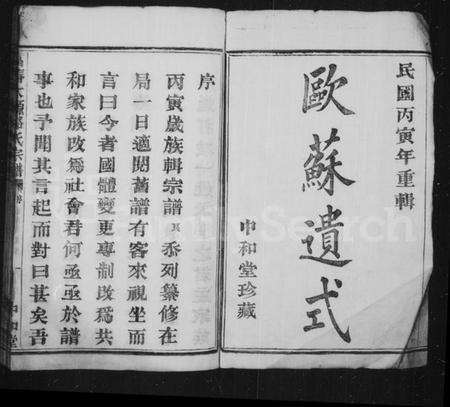 民國丙寅年重輯
歐蘇遺式
中和堂珍藏
序
丙寅歲族輯宗譜其忝列纂修在
局一日適閱舊譜有客來視坐而
言曰今者國體變更專制改為共
和家族改為社會君何亟亟於譜
事也予聞其言起而對曰甚矣吾
氏宗譜
中和堂
FamilySearch